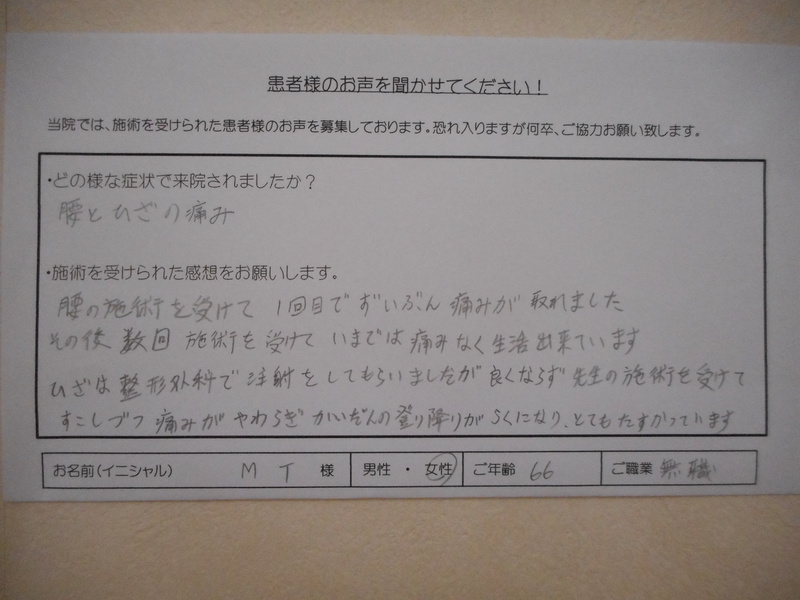 患者様のお声を聞かせてください！
当院では、施術を受けられた患者様のお声を募集しております。恐れ入りますが何卒、ご協力お願い致します。
・どの様な症状で来院されましたか？
腰とひざの痛み
・施術を受けられた感想をお願いします。
腰の施術を受けて 1回目でずいぶん 痛みが 取れました
その後 数回 施術を受けて いまでは 痛みなく生活出来ています
ひざは 整形外科で 注射をしてもらいましたが 良くならず 先生の施術を受けて
すこしづつ 痛みが やわらぎ かいだんの登り降りが らくになり、とてもたすかっています
お名前（イニシャル） M T 様 男性 ・ 女性 ご年齢 66 ご職業 無職